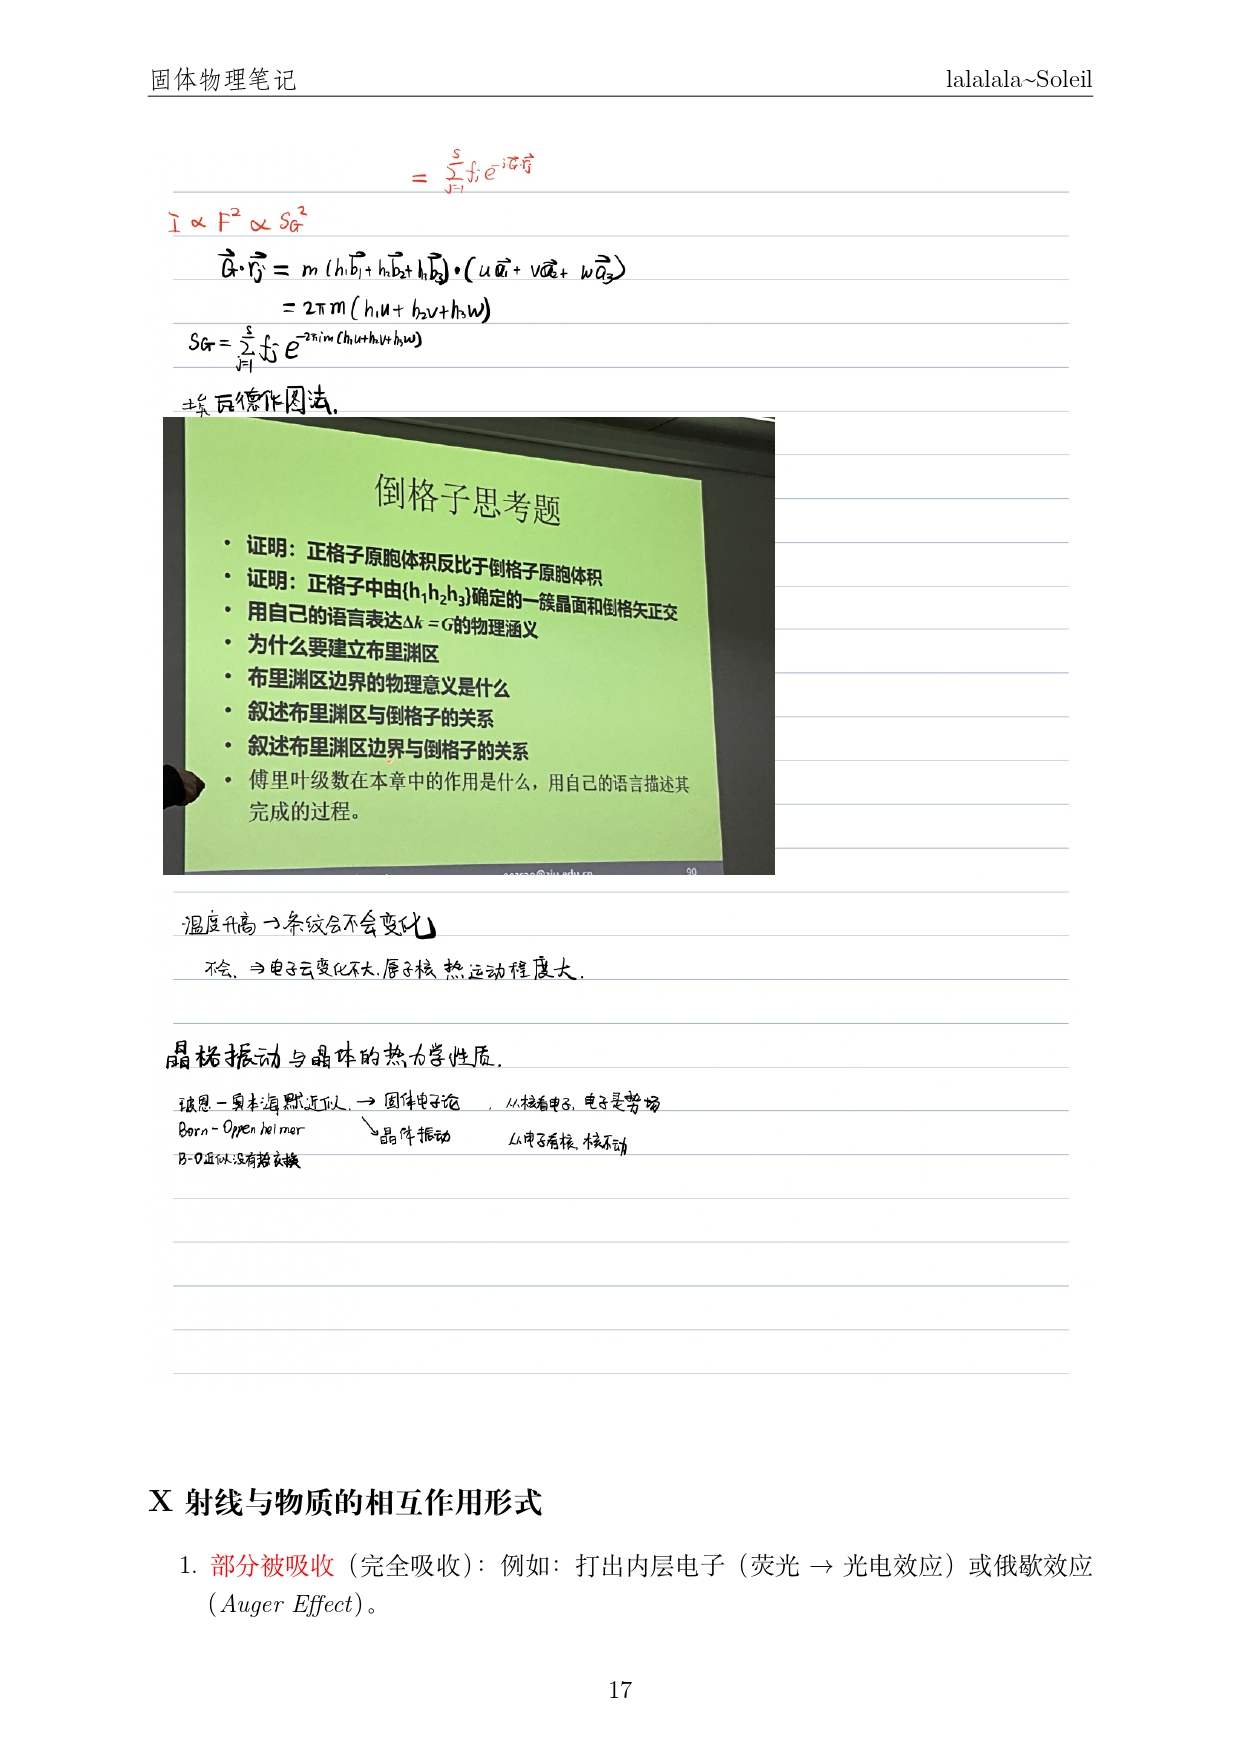 固体物理笔记 lalalala~Soleil
= \sum_{j=1}^{s} f_j e^{-i\vec{G}\cdot\vec{r_j}}
I ∝ F² ∝ S_G²
\vec{G}·\vec{r_j} = m(h_1\vec{b_1}+h_2\vec{b_2}+h_3\vec{b_3})·(u\vec{a_1}+v\vec{a_2}+w\vec{a_3})
= 2πm(h_1u+h_2v+h_3w)
S_G = \sum_{j=1}^{s} f_j e^{-2πim(h_1u+h_2v+h_3w)}
埃瓦德作图法.
倒格子思考题
• 证明：正格子原胞体积反比于倒格子原胞体积
• 证明：正格子中由{h₁h₂h₃}确定的一簇晶面和倒格矢正交
• 用自己的语言表达Δk=G的物理涵义
• 为什么要建立布里渊区
• 布里渊区边界的物理意义是什么
• 叙述布里渊区与倒格子的关系
• 叙述布里渊区边界与倒格子的关系
• 傅里叶级数在本章中的作用是什么，用自己的语言描述其
完成的过程。
90
温度升高→条纹会不会变化
不会. ⇒电子云变化不大.原子核热运动程度大.
晶格振动与晶体的热力学性质.
玻恩-奥本海默近似. → 固体电子论 , 从核看电子, 电子是势场
Born-Oppenheimer ↘晶体振动 从电子看核, 核不动
B-O近似没有
X 射线与物质的相互作用形式
1. 部分被吸收（完全吸收）：例如：打出内层电子（荧光 → 光电效应）或俄歇效应
（Auger Effect）。
17